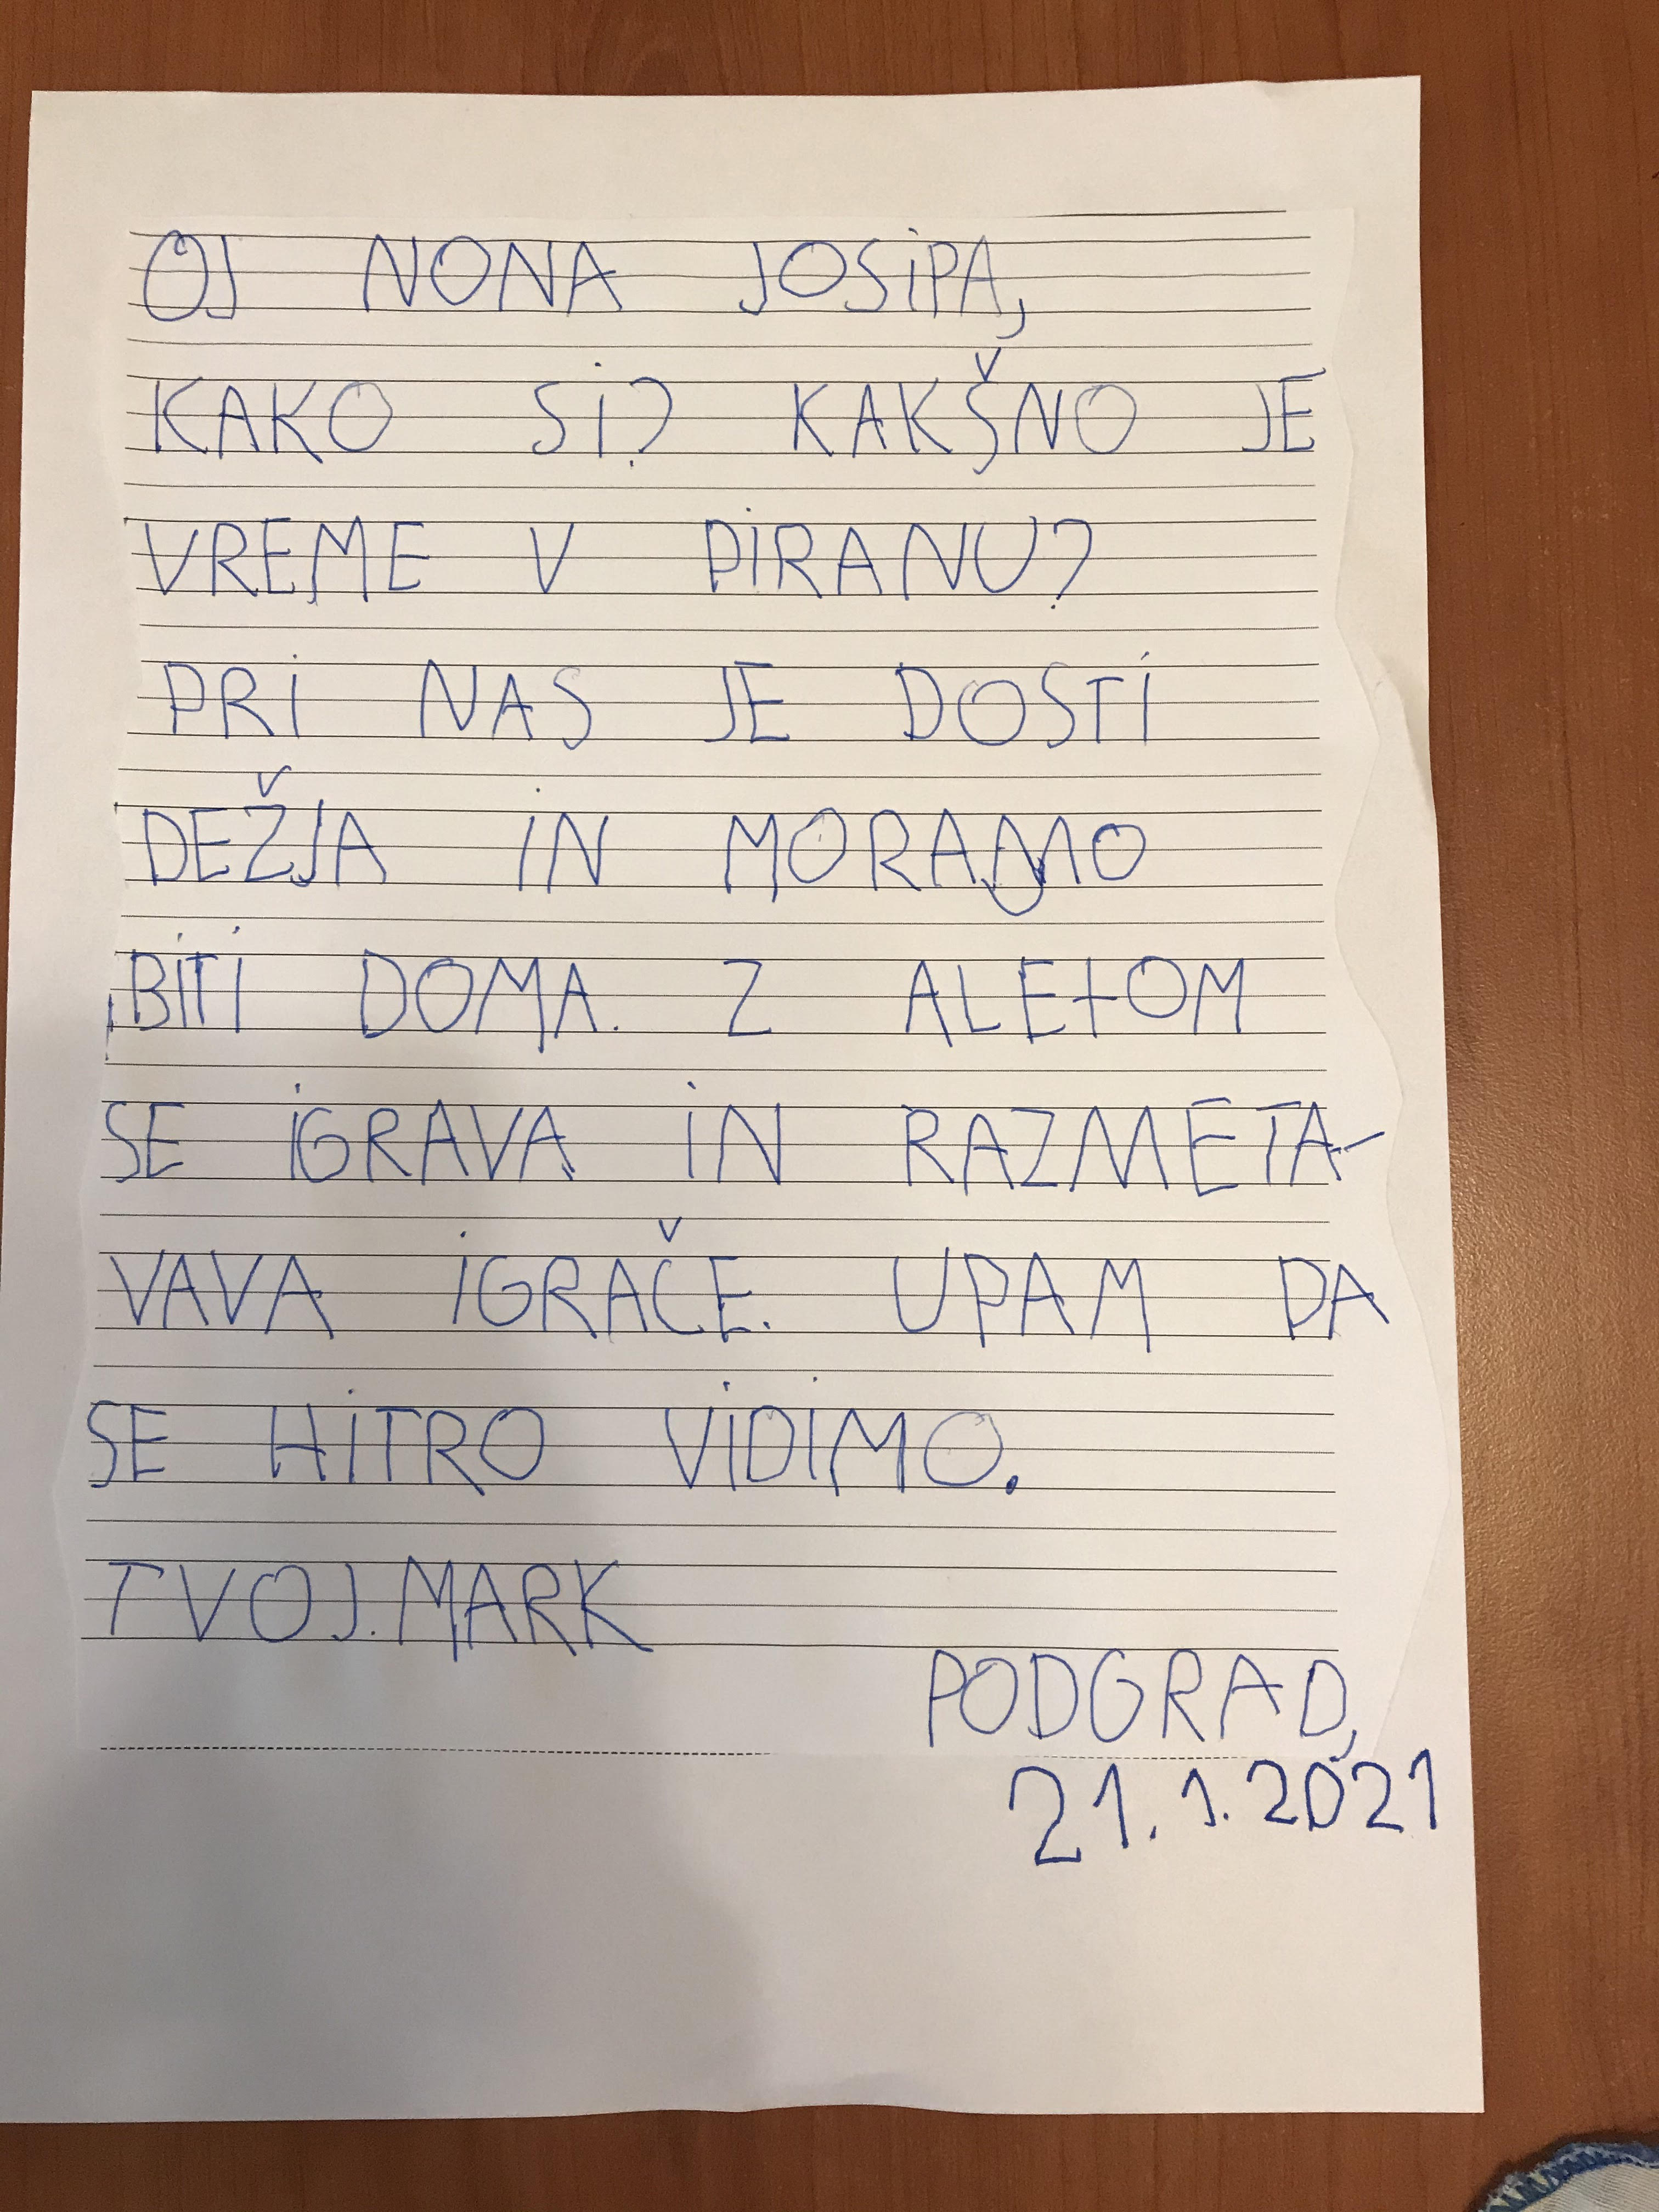 OJ NONA JOSiPA,
KAKO Si? KAKŠNO JE
VREME V PiRANU?
PRi NAS JE DOSTi
DEŽJA iN MORAMO
BiTi DOMA. Z ALEtOM
SE iGRAVA iN RAZMETA-
VAVA iGRAČE. UPAM DA
SE HiTRO ViDiMO.
TVOJ.MARK
PODGRAD,
21.1.2021